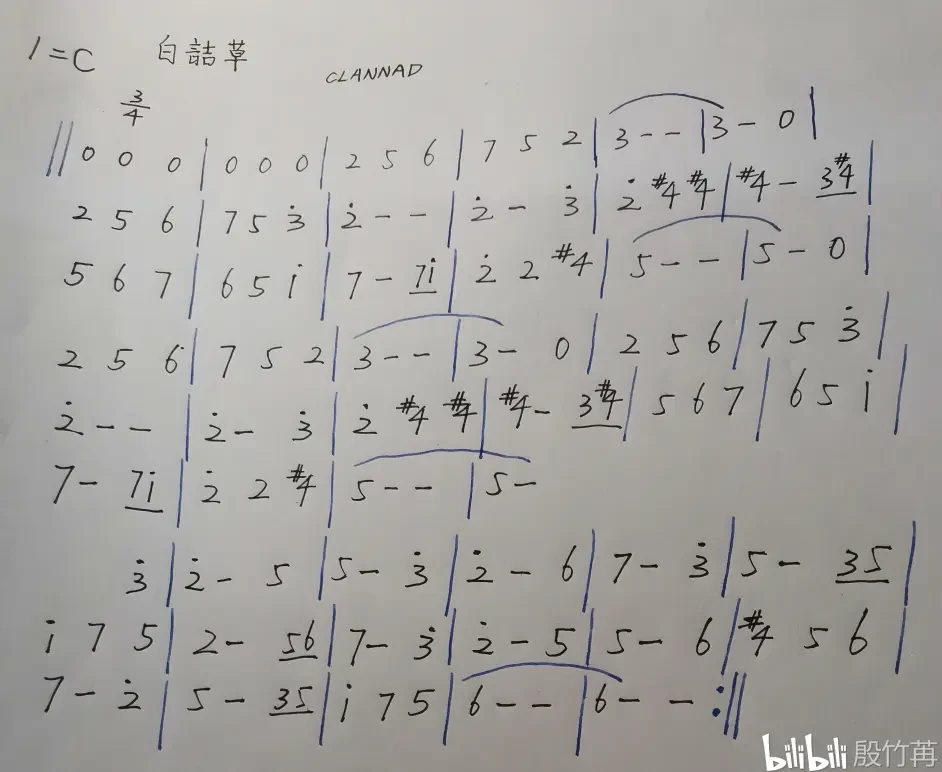 1=C 白詰草 CLANNAD
3/4
‖ 0 0 0 | 0 0 0 | 2 5 6 | 7 5 2 | 3 - - | 3 - 0 |
2 5 6 | 7 5 3̇ | 2̇ - - | 2̇ - 3̇ | 2̇ #4 #4 | #4 - 3#4 |
5 6 7 | 6 5 i | 7 - 7i | 2̇ 2 #4 | 5 - - | 5 - 0 |
2 5 6 | 7 5 2 | 3 - - | 3 - 0 | 2 5 6 | 7 5 3̇ |
2̇ - - | 2̇ - 3̇ | 2̇ #4 #4 | #4 - 3#4 | 5 6 7 | 6 5 i |
7 - 7i | 2̇ 2 #4 | 5 - - | 5 -
3̇ | 2̇ - 5 | 5 - 3̇ | 2̇ - 6 | 7 - 3̇ | 5 - 35 |
i 7 5 | 2 - 56 | 7 - 3̇ | 2̇ - 5 | 5 - 6 | #4 5 6 |
7 - 2̇ | 5 - 35 | i 7 5 | 6 - - | 6 - - :‖
bilibili 殷竹苒